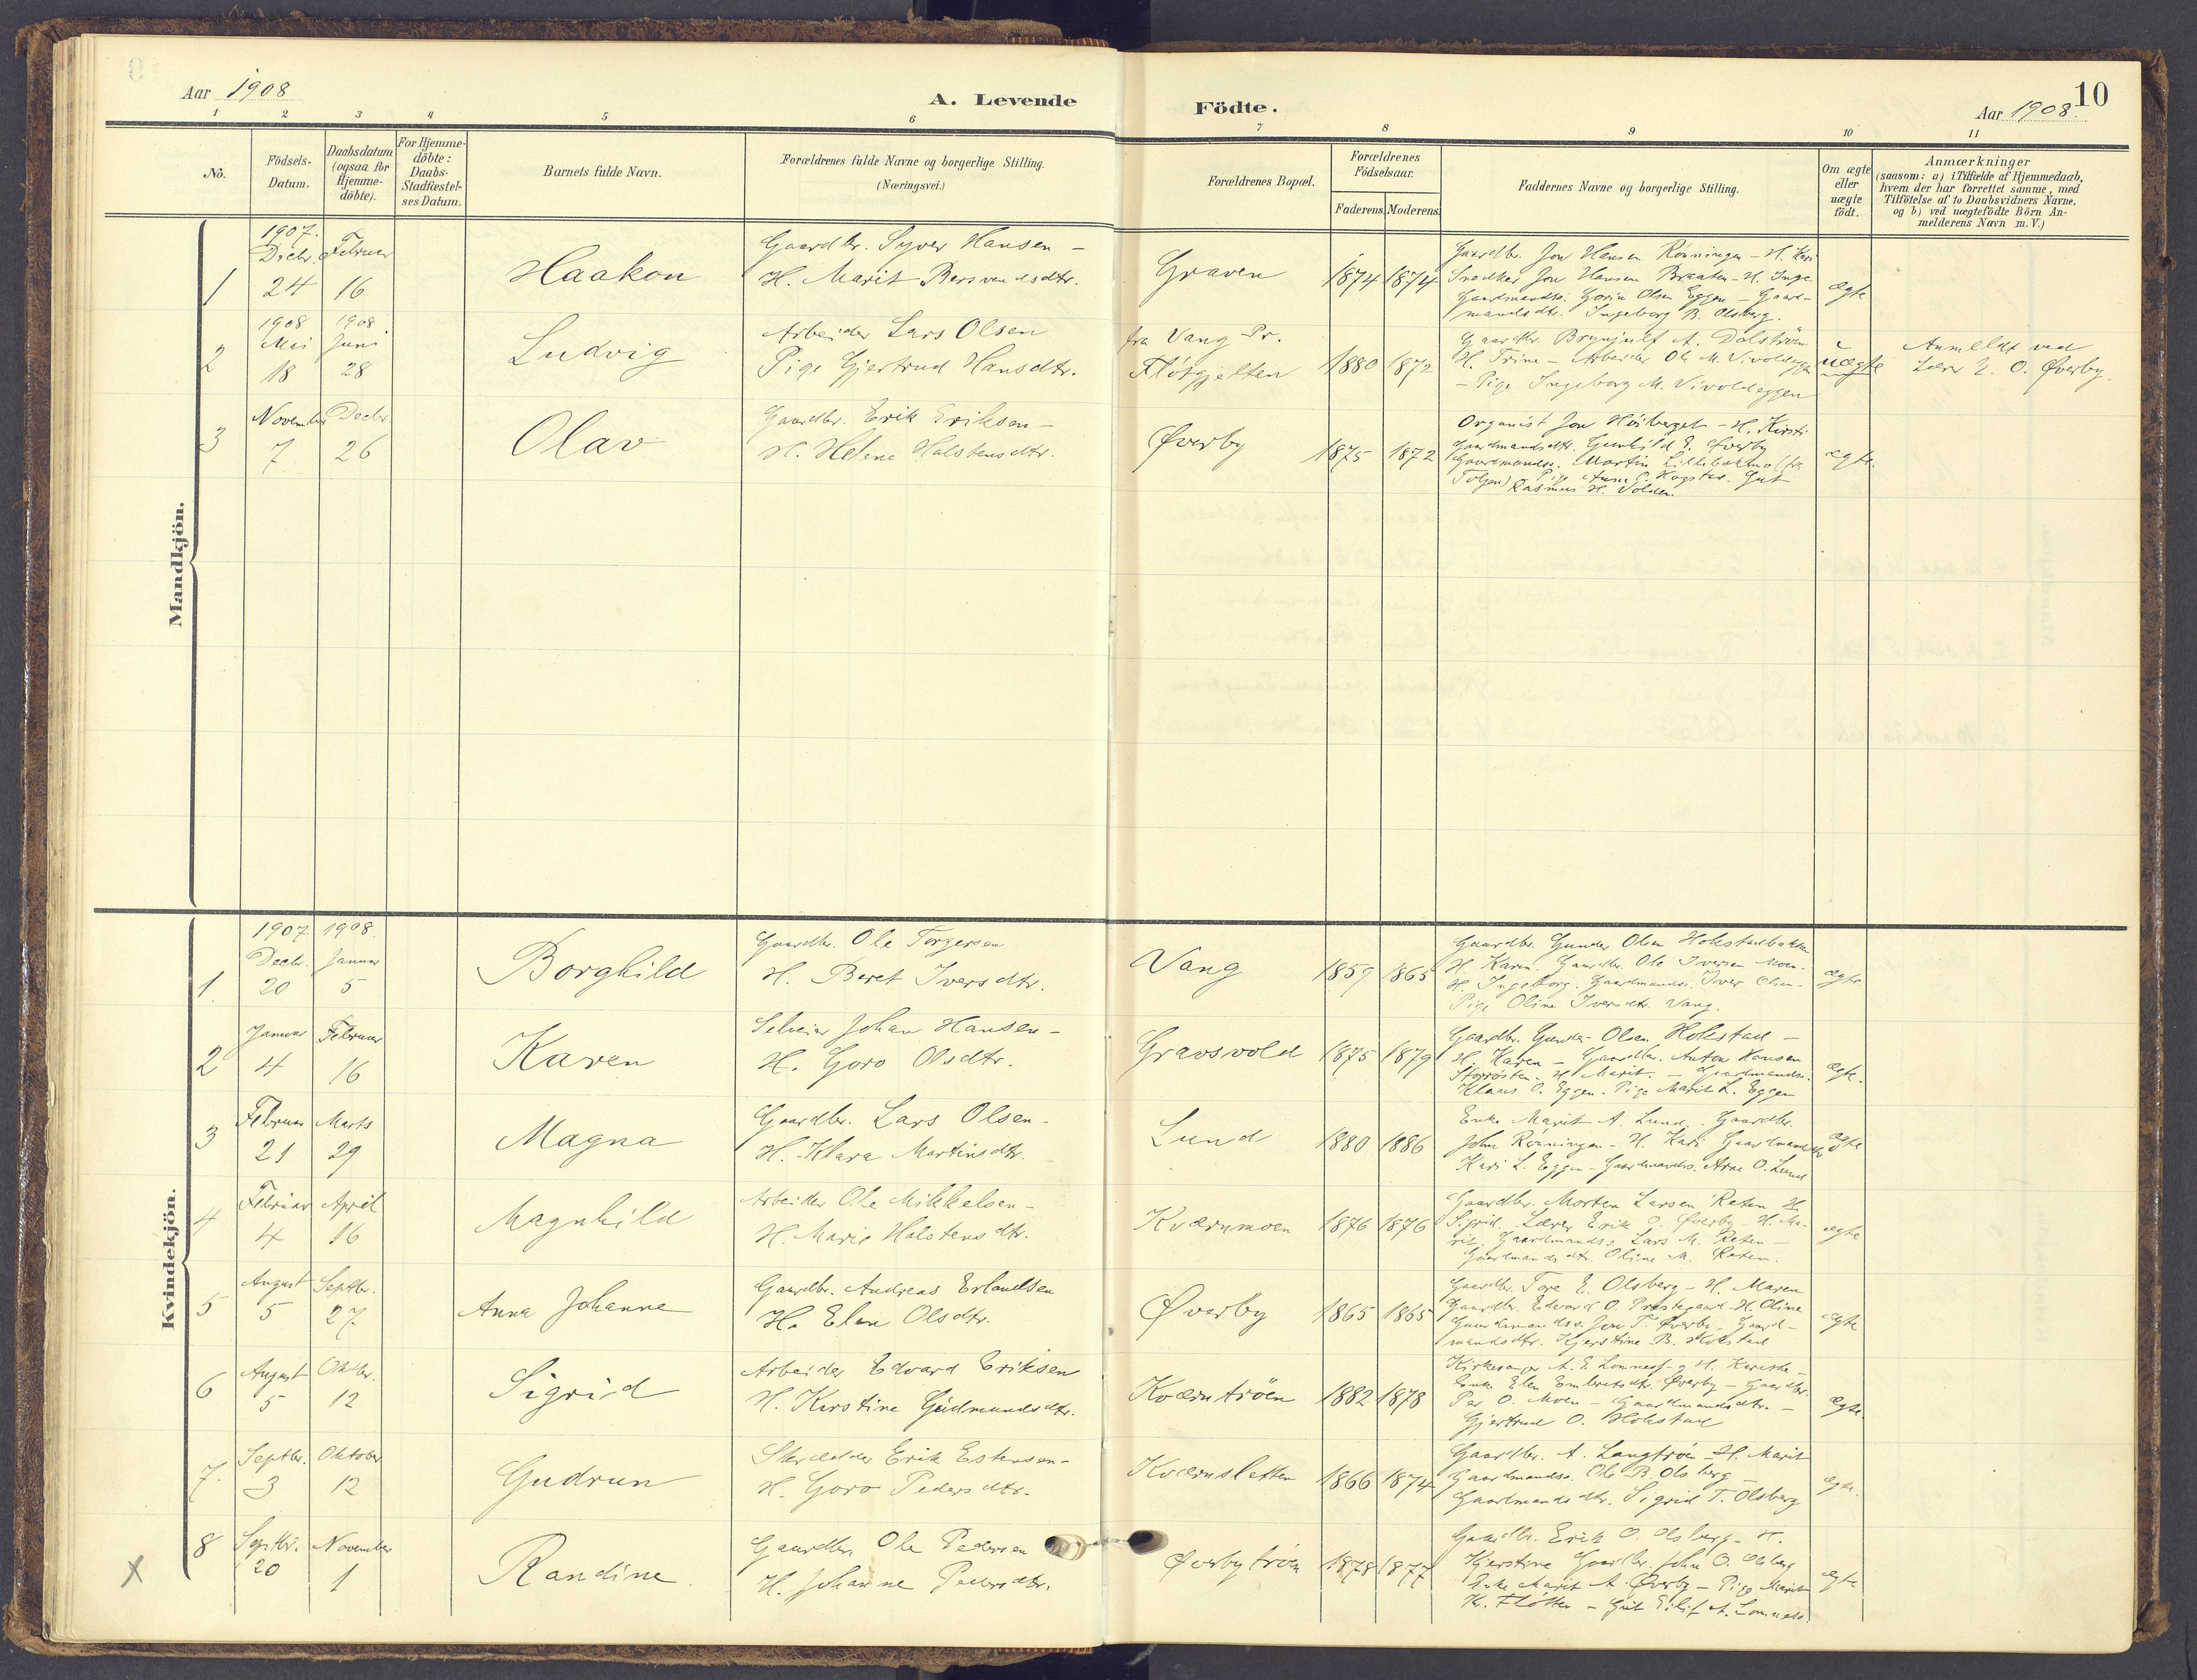 10
Aar 1908
A. Levende Födte.
Aar 1908.
1 2 3 4 5 6 7 8 9 10 11
No.
Födsels-Datum.
Daabsdatum (ogsaa for Hjemme-döbte).
For Hjemme-döbte: Daabs-Stadfæstel-ses Datum.
Barnets fulde Navn.
Forældrenes fulde Navne og borgerlige Stilling.
(Næringsvei.)
Forældrenes Bopæl.
Forældrenes Födselsaar.
Faderens. Moderens.
Faddernes Navne og borgerlige Stilling.
Om ægte eller uægte födt.
Anmærkninger
(saasom: a) i Tilfælde af Hjemmedaab,
hvem der har forrettet samme, med
Tilföielse af to Daabsvidners Navne.
og b) ved uægtefödte Börn An-
melderens Navn m.V.)
Mandkjön.
1
1907. Decbr. 24
Februar 16
Haakon
Gaardbr. Syver Hansen –
H. Marit Bersvendsdtr.
Graven
1874 1874
Gaardbr. Jon Hansen Rönningen – H. Kari
Snedker Jon Hansen Braaten – H. Inga
Gaardmandss. Olsen Eggen – Gaard-
mandsdtr. Ingeborg B. Olsberg.
ægte
2
1908 Mai 18
1908 Juni 28
Ludvig
Arbeider Lars Olsen
Pige Gjertrud Hansdtr.
fra Vang Pr.
Flötgjelten
1880 1872
Gaardbr. Brynjulf A. Dalströen
H. Trine – Arbeider Ole M. Vivoldeggen
– Pige Ingeborg M. Vivoldeggen
uægte
Anmeldt ved
Lærer E. O. Øverby.
3
November 7
Decbr. 26
Olav
Gaardbr. Erik Eriksen –
H. Helene Halstensdtr.
Øverby
1875 1872
Organist Jon – H. Kirsti
Gaardmandsdtr. Gunhild E. Øverby
Gaardmandss. Martin (fra
Tolgen) Pige Anna Gut
Rasmus H. Volden
ægte.
Kvindekjön.
1.
1907 Decbr. 20
1908. Januar 5
Borghild
Gaardbr. Ole Torgersen
H. Beret Iversdtr.
Vang
1859 1865
Gaardbr. Gunder Olsen Hokstadbakken
H. Karen. Gaardbr. Ole Iversen Moen –
H. Ingeborg. Gaardmandss. Iver Olsen –
Pige Oline Iversdtr. Vang.
ægte
2
Januar 4
Februar 16
Karen
Selveier Johan Hansen –
H. Goro Olsdtr.
Gravsvold
1875 1879
Gaardbr. Gunder Olsen Hokstad –
H. Karen – Gaardbr. Anton Hansen
Storrösten. H. Marit. – Gaardmandss.
Klaus O. Eggen. Pige Marit L. Eggen
ægte.
3
Februar 21
Marts 29
Magna
Gaardbr. Lars Olsen –
H. Klara Martinsdtr.
Lund
1880 1886
Enke Marit A. Lund. Gaardbr.
John Rönningen – H. Kari Gaardmandsdtr
Kari L. Eggen – Gaardmandss. Arne O. Lund
ægte
4
Februar 4
April 16
Magnhild
Arbeider Ole Mikkelsen –
H. Marie Halstensdtr.
Kværnmoen
1876 1876
Gaardbr. Morten Larsen Röten H.
Sigrid. Lærer Erik O. Øverby – H. Ma-
rie. Gaardmandss. Lars M. Röten –
Gaardmandsdtr. Oline M. Röten.
ægte
5
August 5
Septbr. 27
Anna Johanne
Gaardbr. Andreas Erlandsen
H. Elen Olsdtr.
Øverby
1865 1865
Gaardbr. Tore E. Olsberg – H. Maren
Gaardbr. Edvard O. Prestegaard – H. Oline
Gaardmandss. Jon T. Øverby – Gaard-
mandsdtr. Kjerstine B. Hokstad
ægte
6
August 5
Oktbr. 12
Sigrid
Arbeider Edvard Eriksen
H. Kirstine Gudmundsdtr.
Kværntröen
1882 1878
Kirkesanger A. E. – H.
Enke Elen Embretsdtr. Øverby – Gaardbr.
Per O. Moen – Gaardmandsdtr. –
Gjertrud O. Hokstad
ægte.
7.
Septbr. 3
Oktober 12
Gudrun
Skrædder Erik Estensen –
H. Goro Pedersdtr.
Kværnsletten
1866 1874
Gaardbr. A. Langtröen – H. Marit
Gaardmandss. Ole B. Olsberg –
Gaardmandsdtr. Sigrid T. Olsberg
ægte.
8
Septbr. 20
November 1
Randine
Gaardbr. Ole Pedersen
H. Johanne Pedersdtr.
Øverbytröen
1878 1877
Gaardbr. Erik O. Olsberg – H.
Kjerstine Gaardbr. John O. Olsberg
Enke Marit A. Øverby – Pige Marit
K. Flötten – Gut Eilif A.
ægte
X